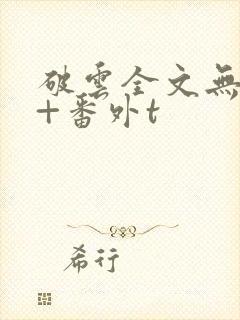 破雲全文無
+番外t
希行